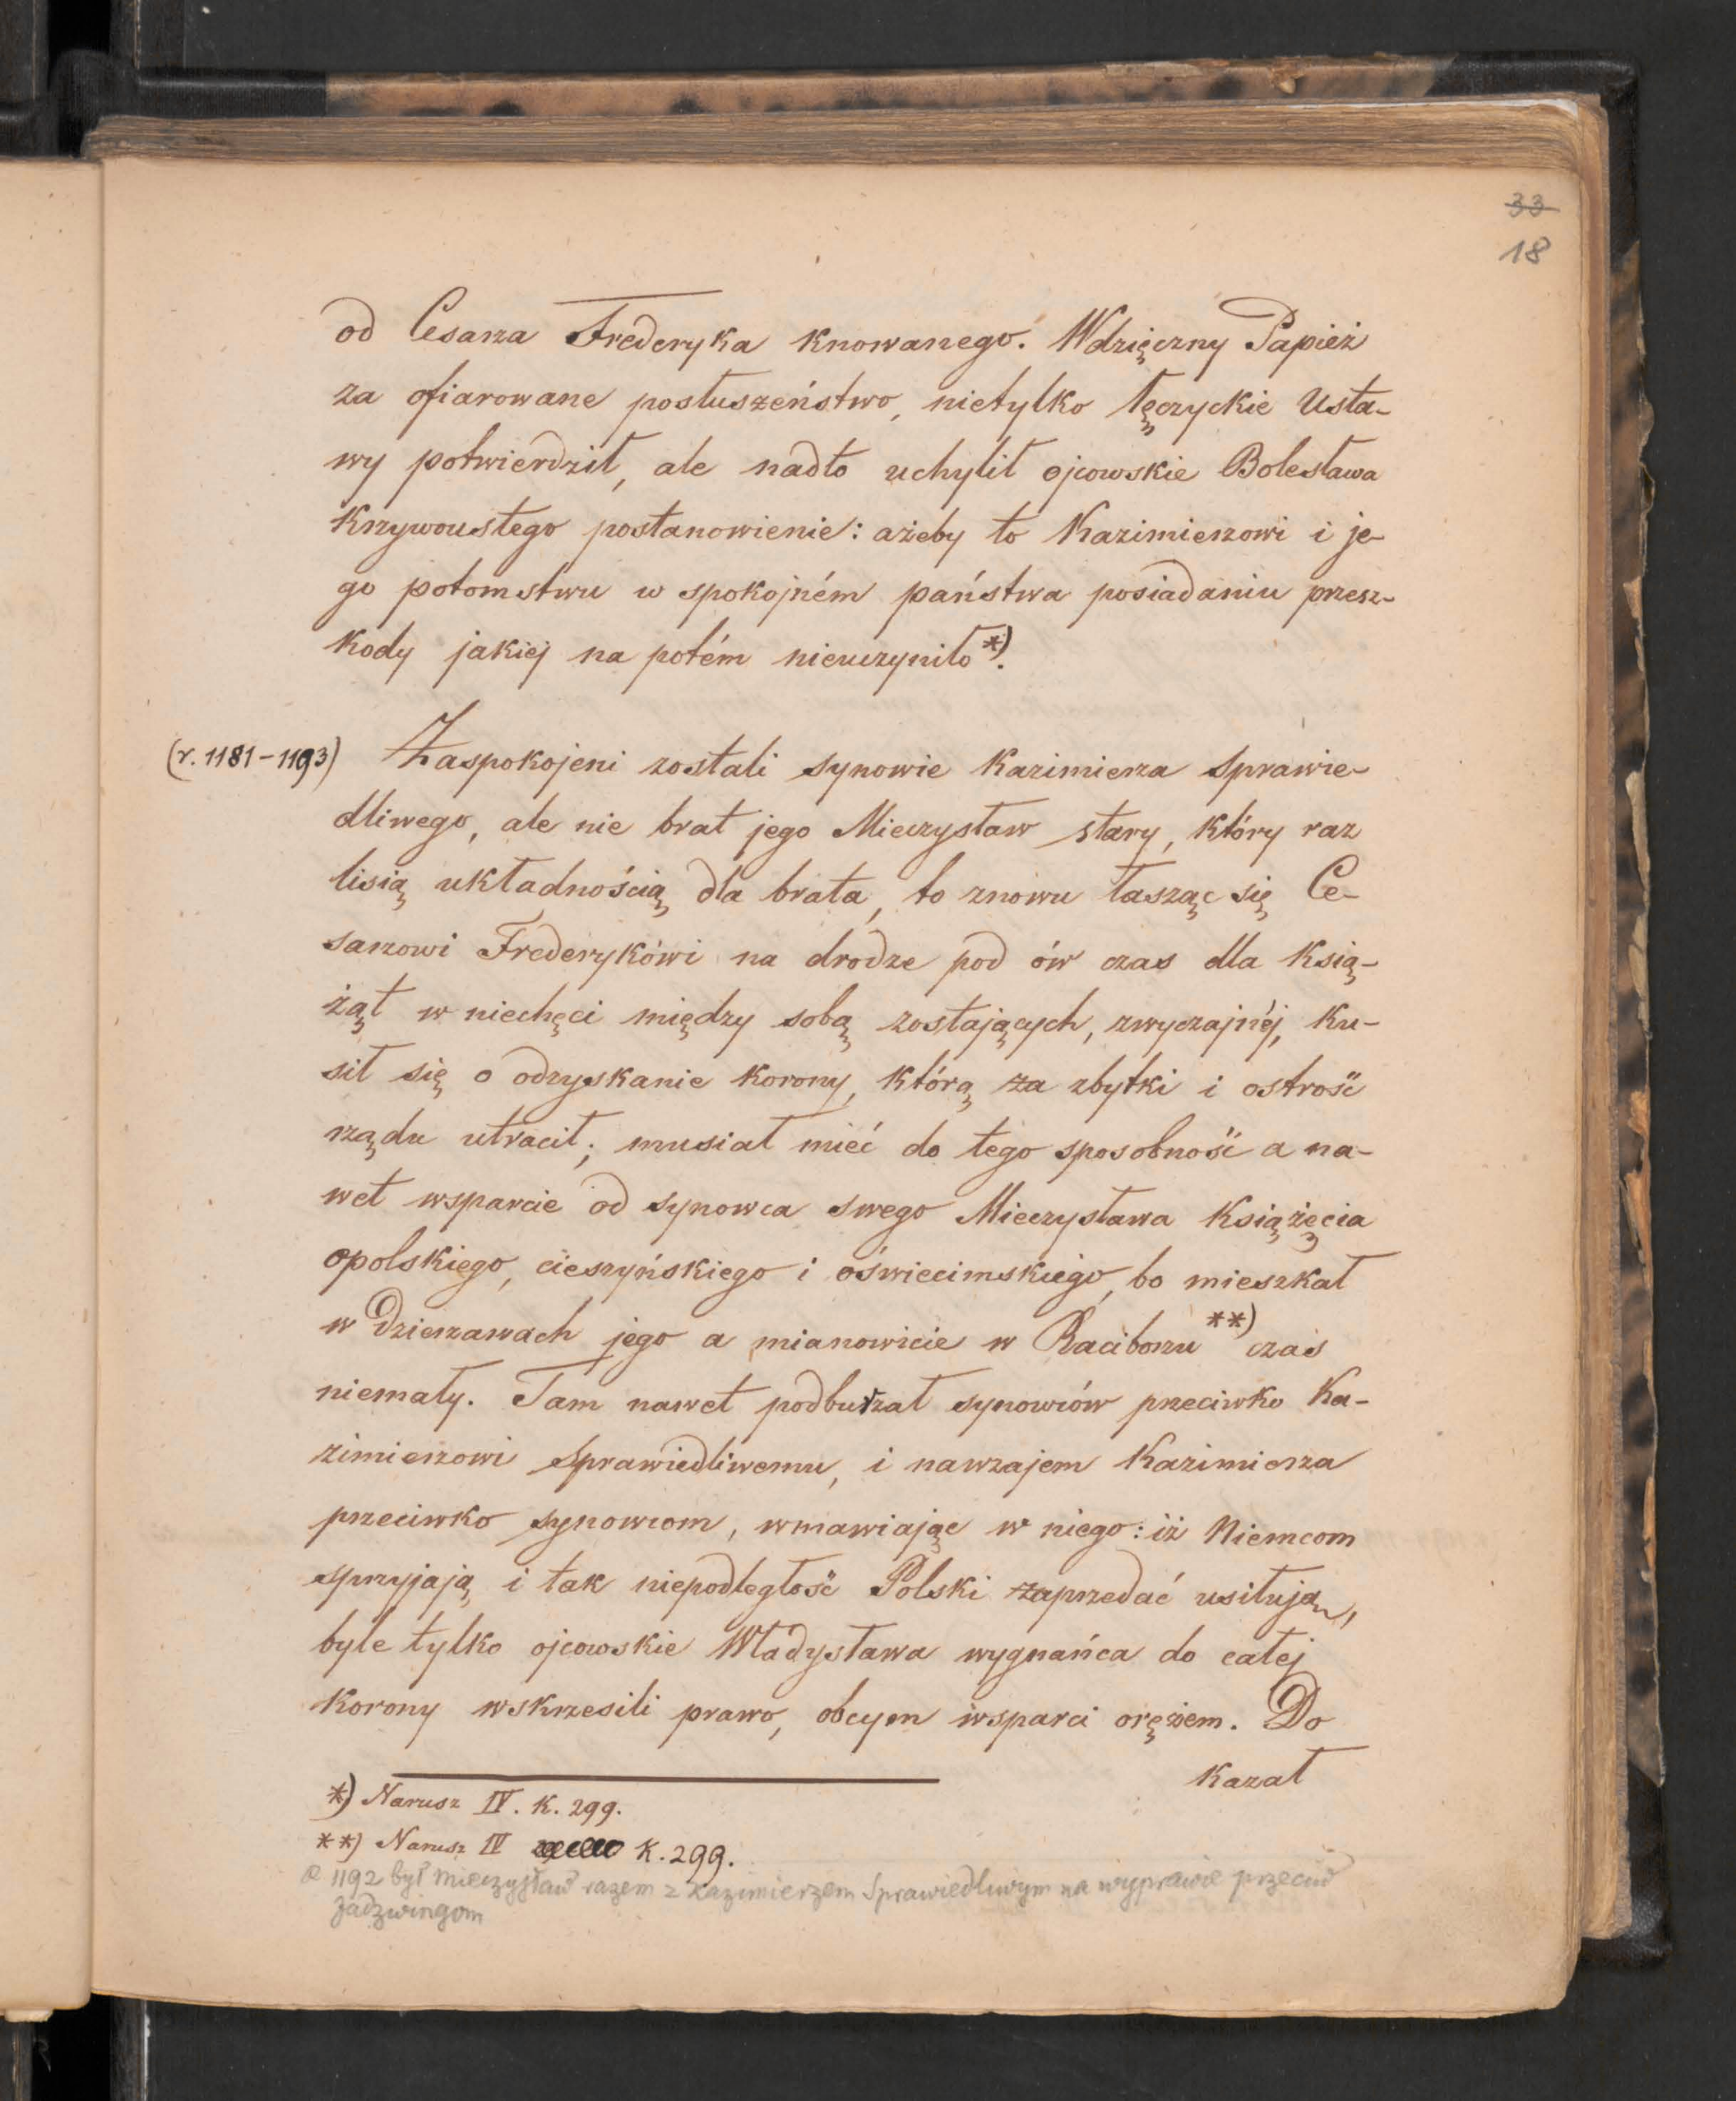 33
18
od Cesarza Frederyka knowanego. Wdzięczny Papież
za ofiarowane posłuszeństwo, nietylko łęczyckie Usta-
wy potwierdził, ale nadto uchylił ojcowskie Bolesława
Krzywoustego postanowienie: ażeby to Kazimierzowi i je-
go potomstwu w spokojném państwa posiadaniu przesz-
kody jakiej na potém nieuczyniło*).
(r. 1181-1193) Zaspokojeni zostali synowie Kazimierza Sprawie-
dliwego, ale nie brat jego Mieczysław stary, który raz
lisią układnością dla brata, to znowu łasząc się Ce-
sarzowi Frederykówi na drodze pod ów czas dla ksią-
żąt w niechęci między sobą zostających, zwyczajnéj, ku-
sił się o odzyskanie korony, którą za zbytki i ostrość
rządu utracił; musiał mieć do tego sposobność a na-
wet wsparcie od synowca swego Mieczysława Książęcia
opolskiego, cieszyńskiego i oświecimskiego, bo mieszkał
w dzierzawach jego a mianowicie w Raciborzu **) czas
niemały. Tam nawet podburzał synowców przeciwko Ka-
zimierzowi Sprawiedliwemu, i nawzajem Kazimierza
przeciwko synowcom, wmawiając w niego: iż Niemcom
sprzyjają i tak niepodległość Polski zaprzedać usiłują,
byle tylko ojcowskie Władysława wygnańca do całej
korony wskrzesili prawo, obcym wsparci orężem. Do
kazał
*) Narusz IV. K. 299.
**) Narusz IV K. 299.
R 1192 był Mieczysław razem z Kazimierzem Sprawiedliwym na wyprawie przeciw
Jadzwingom